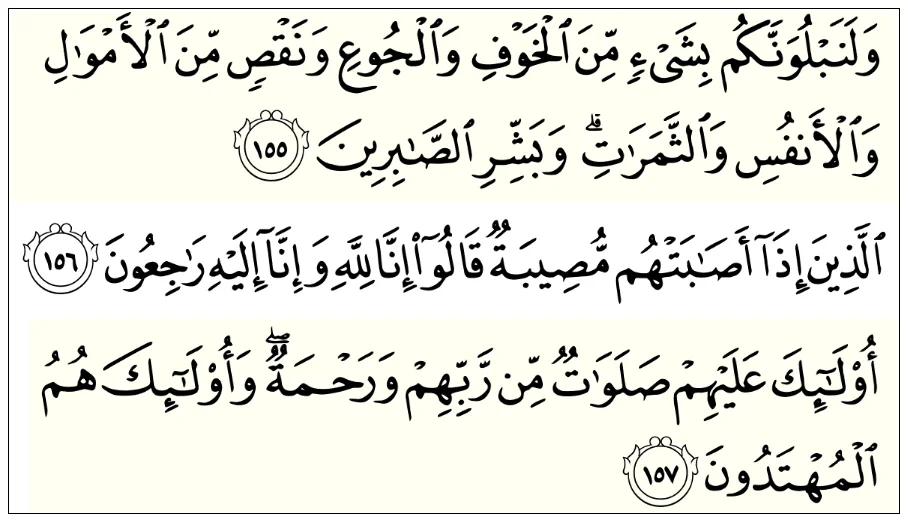 وَلَنَبْلُوَنَّكُم بِشَىْءٍ مِّنَ ٱلْخَوْفِ وَٱلْجُوعِ وَنَقْصٍ مِّنَ ٱلْأَمْوَٰلِ
وَٱلْأَنفُسِ وَٱلثَّمَرَٰتِ ۗ وَبَشِّرِ ٱلصَّـٰبِرِينَ ١٥٥
ٱلَّذِينَ إِذَآ أَصَـٰبَتْهُم مُّصِيبَةٌ قَالُوٓا۟ إِنَّا لِلَّهِ وَإِنَّآ إِلَيْهِ رَٰجِعُونَ ١٥٦
أُو۟لَـٰٓئِكَ عَلَيْهِمْ صَلَوَٰتٌ مِّن رَّبِّهِمْ وَرَحْمَةٌ ۖ وَأُو۟لَـٰٓئِكَ هُمُ
ٱلْمُهْتَدُونَ ١٥٧